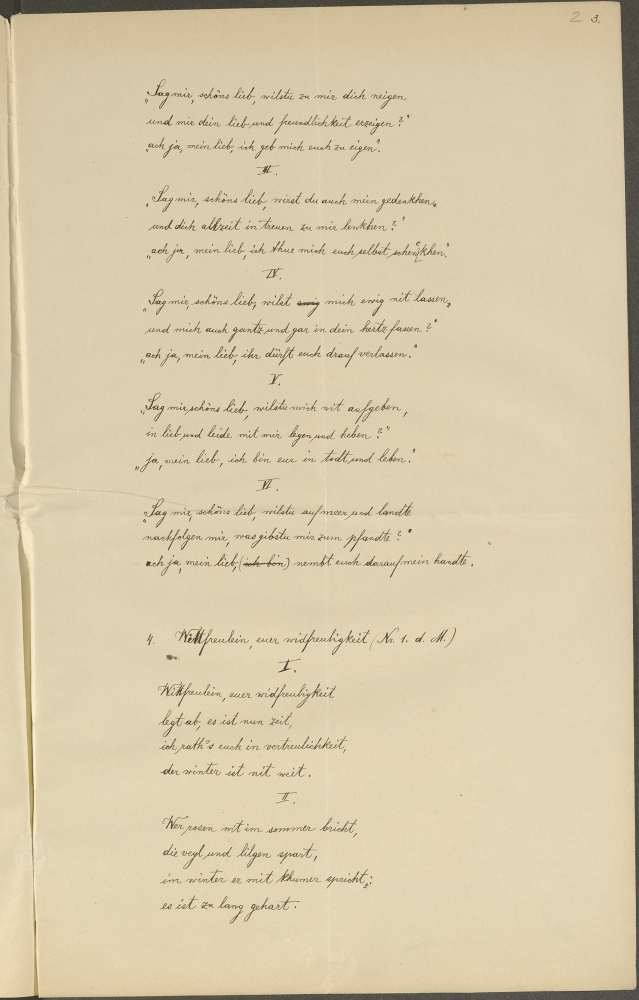 2 3.
„Sag mir, schöns lieb, wilstu zu mir dich neigen
und mir dein lieb und freundlichkeit erzeigen?"
„ach ja, mein lieb, ich geb mich euch zu eigen".
III.
„Sag mir, schöns lieb, wirst du auch mein gedenkhen,
und dich allzeit in treuen zu mir lenkhen?"
„ach ja, mein lieb, ich thue mich euch selbst schenkhen."
IV.
„Sag mir, schöns lieb, wilst ewig mich ewig nit lassen,
und mich auch gantz und gar in dein hertz fassen?"
„ach ja, mein lieb, ihr dürft euch drauf verlassen."
V.
„Sag mir, schöns lieb, wilstu mich nit aufgeben,
in lieb und leide mit mir legen und heben?"
„ja, mein lieb, ich bin eur in todt und leben."
VI.
„Sag mir, schöns lieb, wilstu auf meer und landte
nachfolgen mir, was gibstu mir zum pfandte?"
ach ja, mein lieb, (ich bin) nembt euch darauf mein handte."
4. Wittfreulein, euer widfreuligkeit (Nr. 1. d. M.)
I.
Wittfreulein, euer widfreuligkeit
legt ab, es ist nun zeit,
ich rath's euch in vertreulichkeit,
der winter ist nit weit.
II.
Wer rosen nit im sommer bricht,
die veyl und lilgen spart,
im winter er mit khumer spricht;
es ist zu lang gehart.